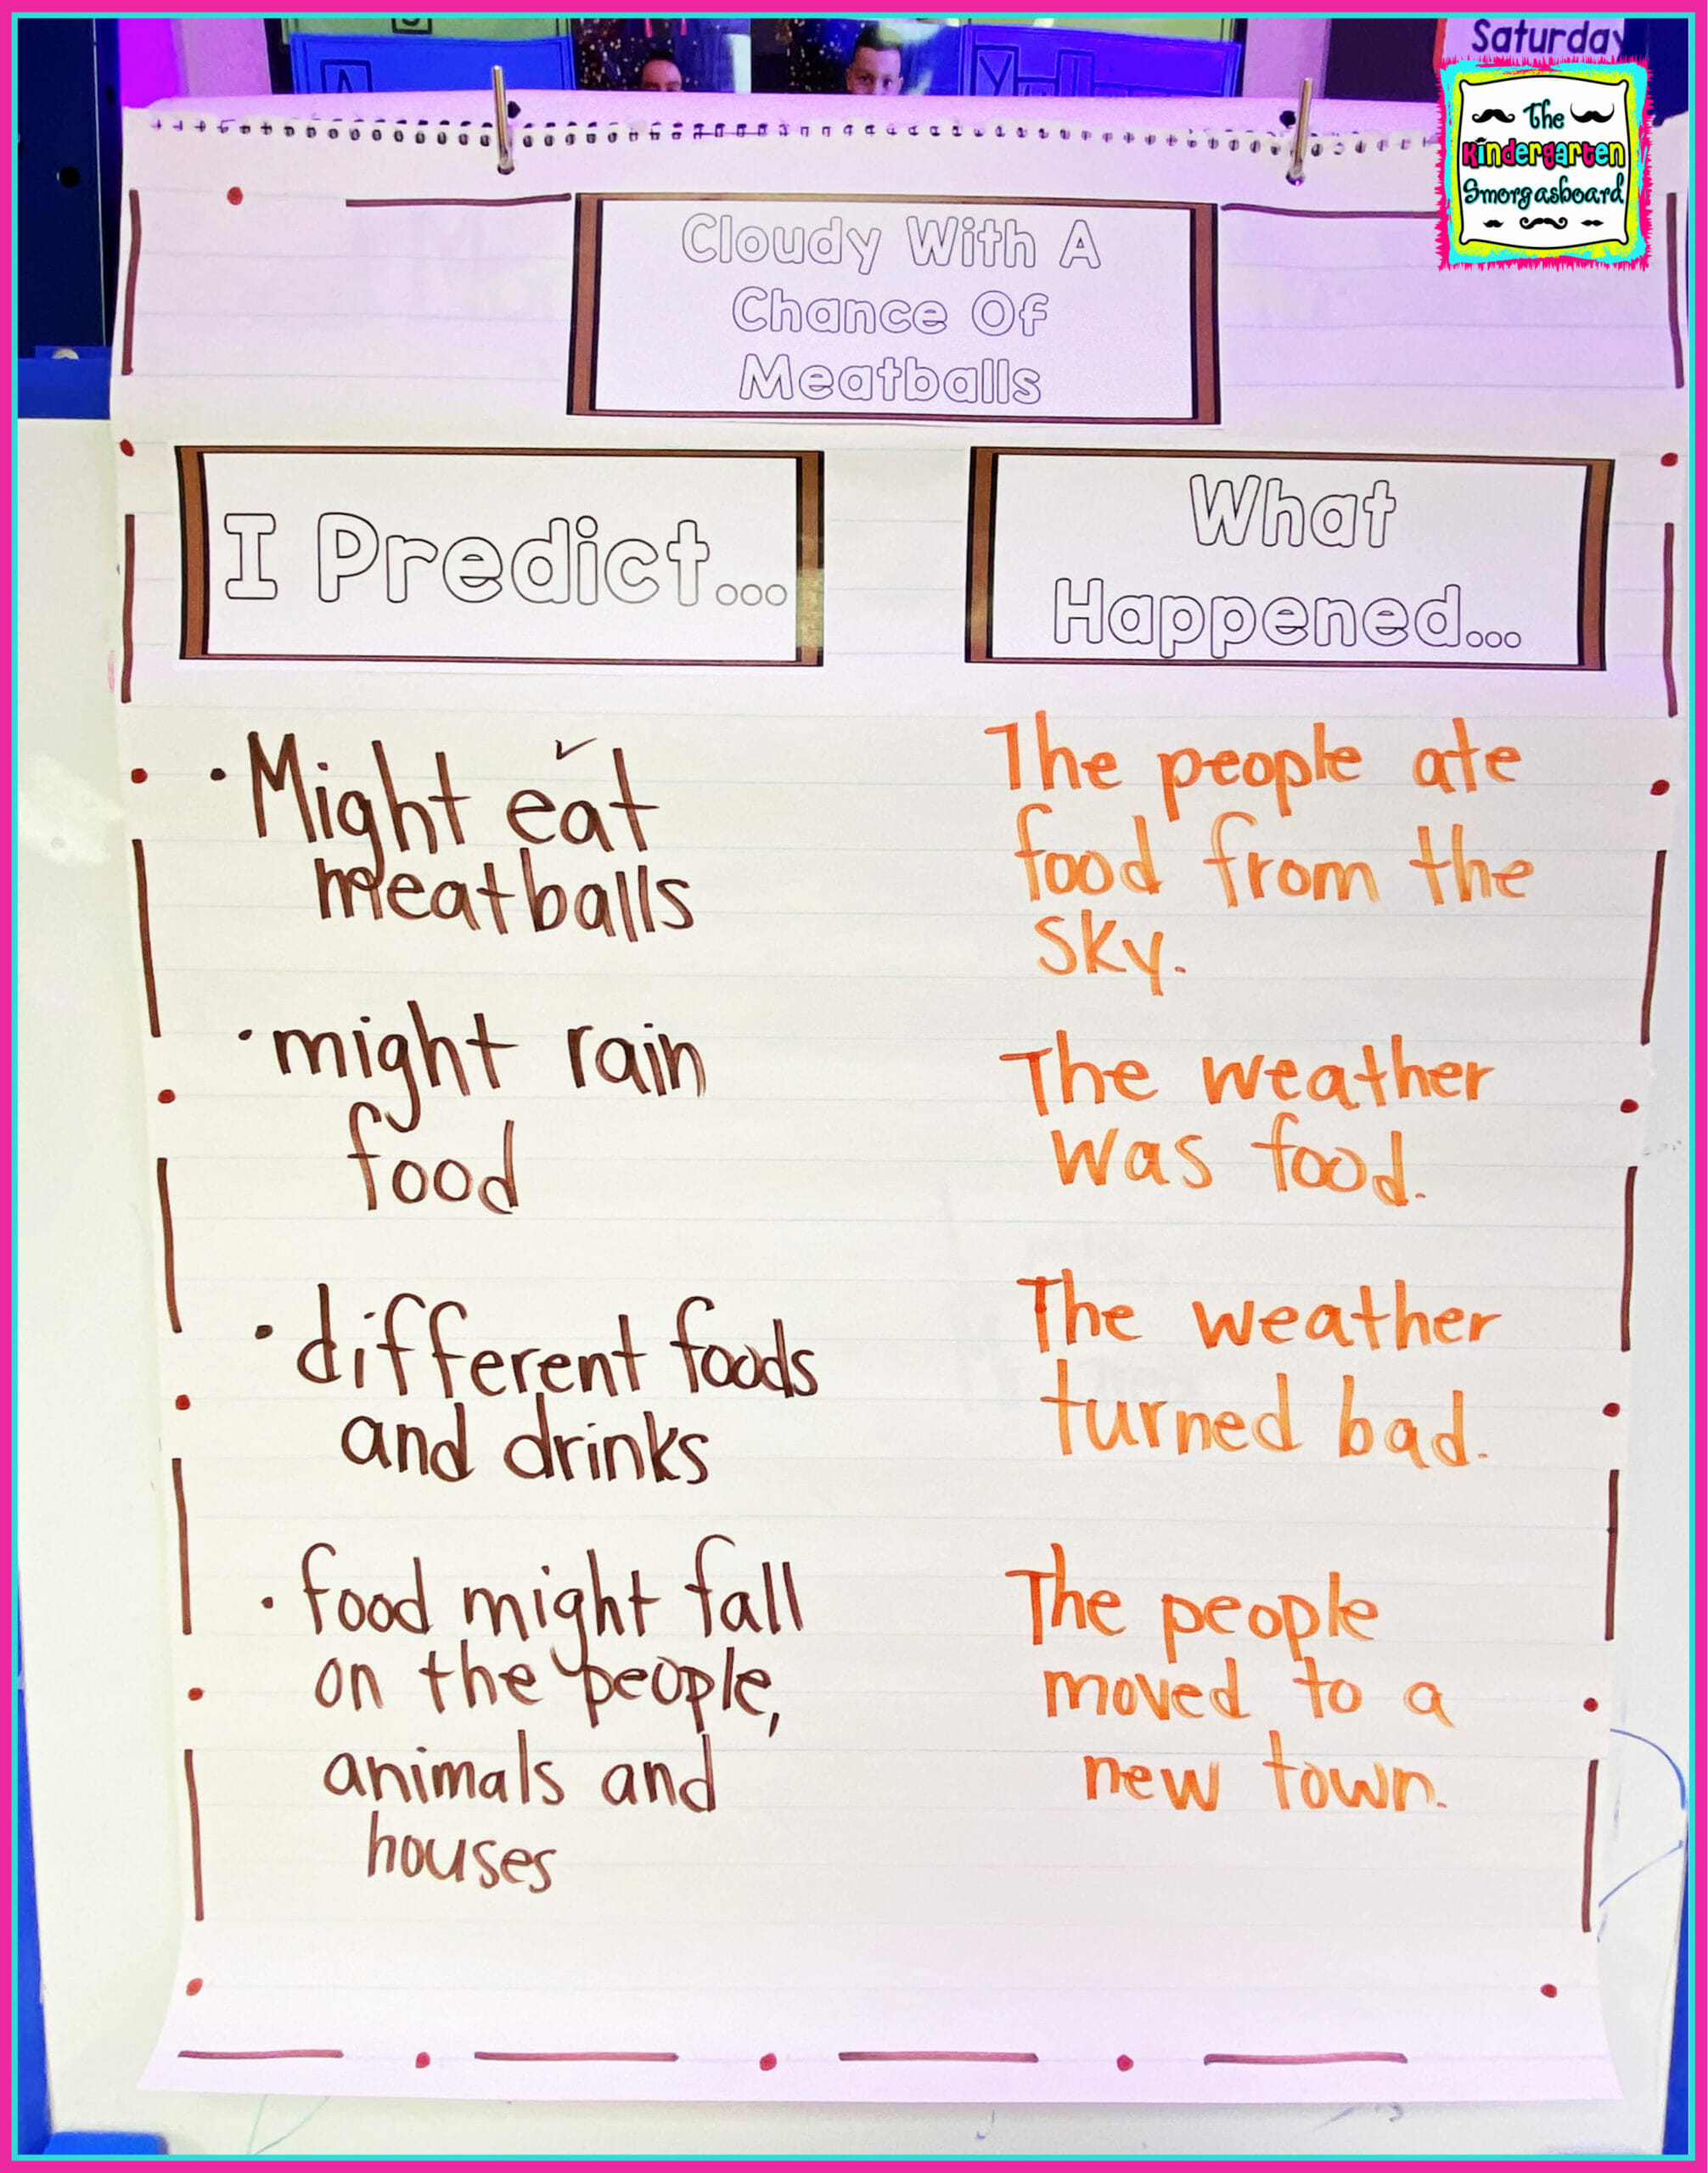 Saturday
The
Kindergarten
Smorgasboard
Cloudy With A
Chance Of
Meatballs
I Predict...
What
Happened...
· Might eat
meatballs
· might rain
food
· different foods
and drinks
· food might fall
on the people,
animals and
houses
The people ate
food from the
sky.
The weather
was food.
The weather
turned bad.
The people
moved to a
new town.